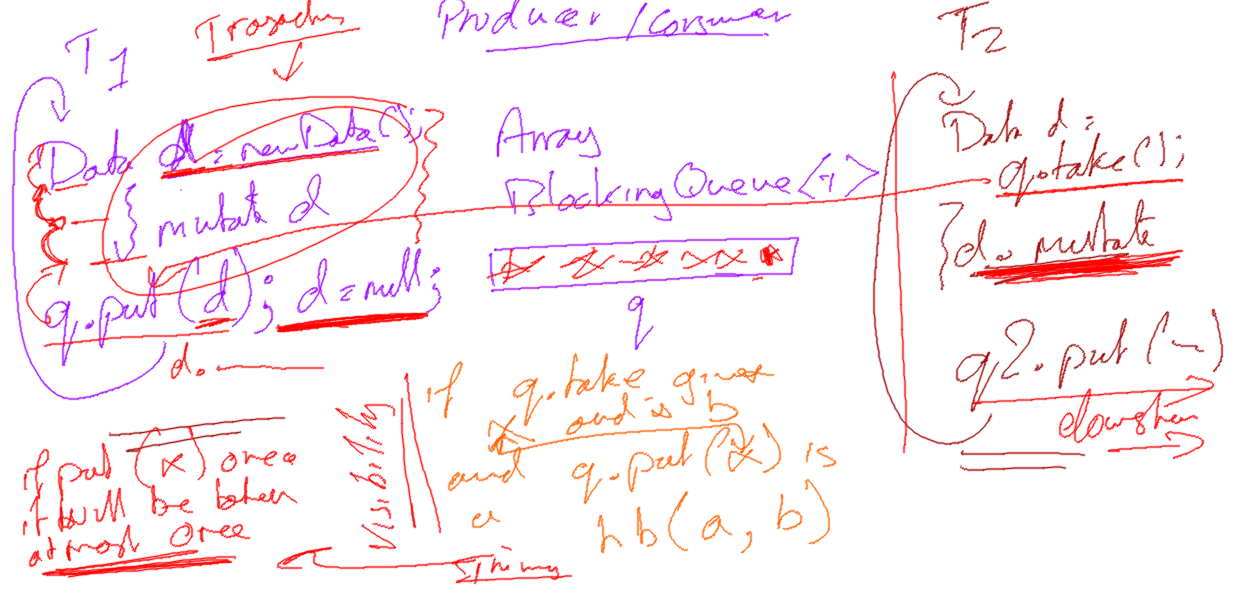 Producer / Consumer
T1
T2
Data d = new Data();
mutate d
q.put(d); d = null;
d.
Array
BlockingQueue<T>
q
Data d =
q.take();
d. mutate
q2.put(~)
if put (x) once
it will be taken
at most once
Visibility
if q.take gives
x and is b
and q.put(x) is
a
hb(a, b)